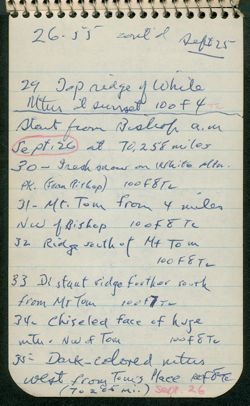 26-55 cont'd Sept 25
29 Top ridge of White
Mtns sunset 100 F 4 Tc
Start from Bishop a.m.
Sept. 26 at 70,258 miles
30- Fresh snow on White Mtn.
Pk. (from Bishop) 100 F 8 Tc
31- Mt. Tom from 4 miles
NW of Bishop 100 F 8 Tc
32 Ridge south of Mt Tom
100 F 8 Tc
33 Distant ridge farther south
from Mt Tom 100 F 7 Tc
34- Chiseled face of huge
mtn. NW of Tom 100 F 8 Tc
35- Dark-colored mtns
west from Tom's Place F 8 Tc
(70,285 mi.) Sept. 26